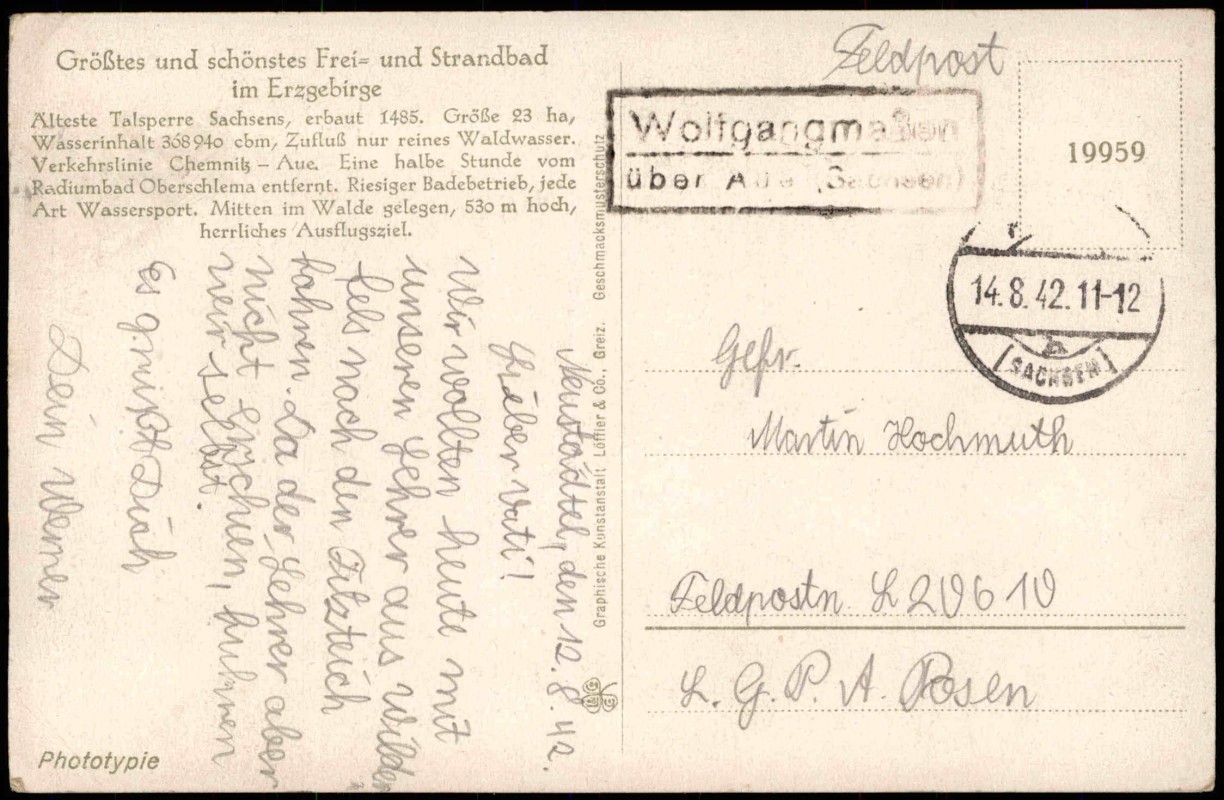 Größtes und schönstes Frei= und Strandbad
im Erzgebirge
Älteste Talsperre Sachsens, erbaut 1485. Größe 23 ha,
Wasserinhalt 368940 cbm, Zufluß nur reines Waldwasser.
Verkehrslinie Chemnitz – Aue. Eine halbe Stunde vom
Radiumbad Oberschlema entfernt. Riesiger Badebetrieb, jede
Art Wassersport. Mitten im Walde gelegen, 530 m hoch,
herrliches Ausflugsziel.
Neustädtel, den 12. 8. 42.
Lieber Vati!
Wir wollten heute mit
unseren Lehrer aus Wilden
fels nach den Filzteich
fahren. Da der Lehrer aber
nicht erschien, fuhren
wir selbst.
Es grüßt Dich
Dein Werner
Phototypie
Graphische Kunstanstalt Löffler & Co., Greiz. Geschmacksmusterschutz
Feldpost
Wolfgangmaßen
über Aue (Sachsen)
19959
14.8.42.11-12
b
(SACHSEN)
Gefr.
Martin Hochmuth
Feldpostn L 20610
L. G. P. A. Posen